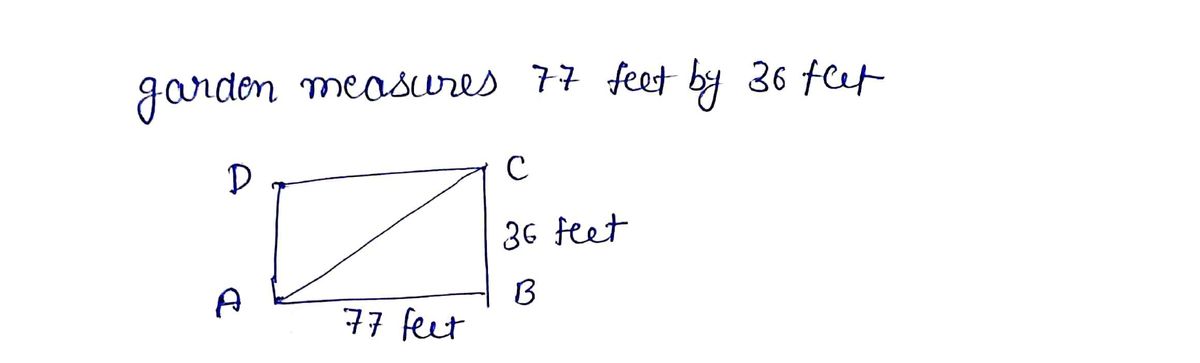 garden measures 77 feet by 36 feet
D
C
36 feet
A
B
77 feet